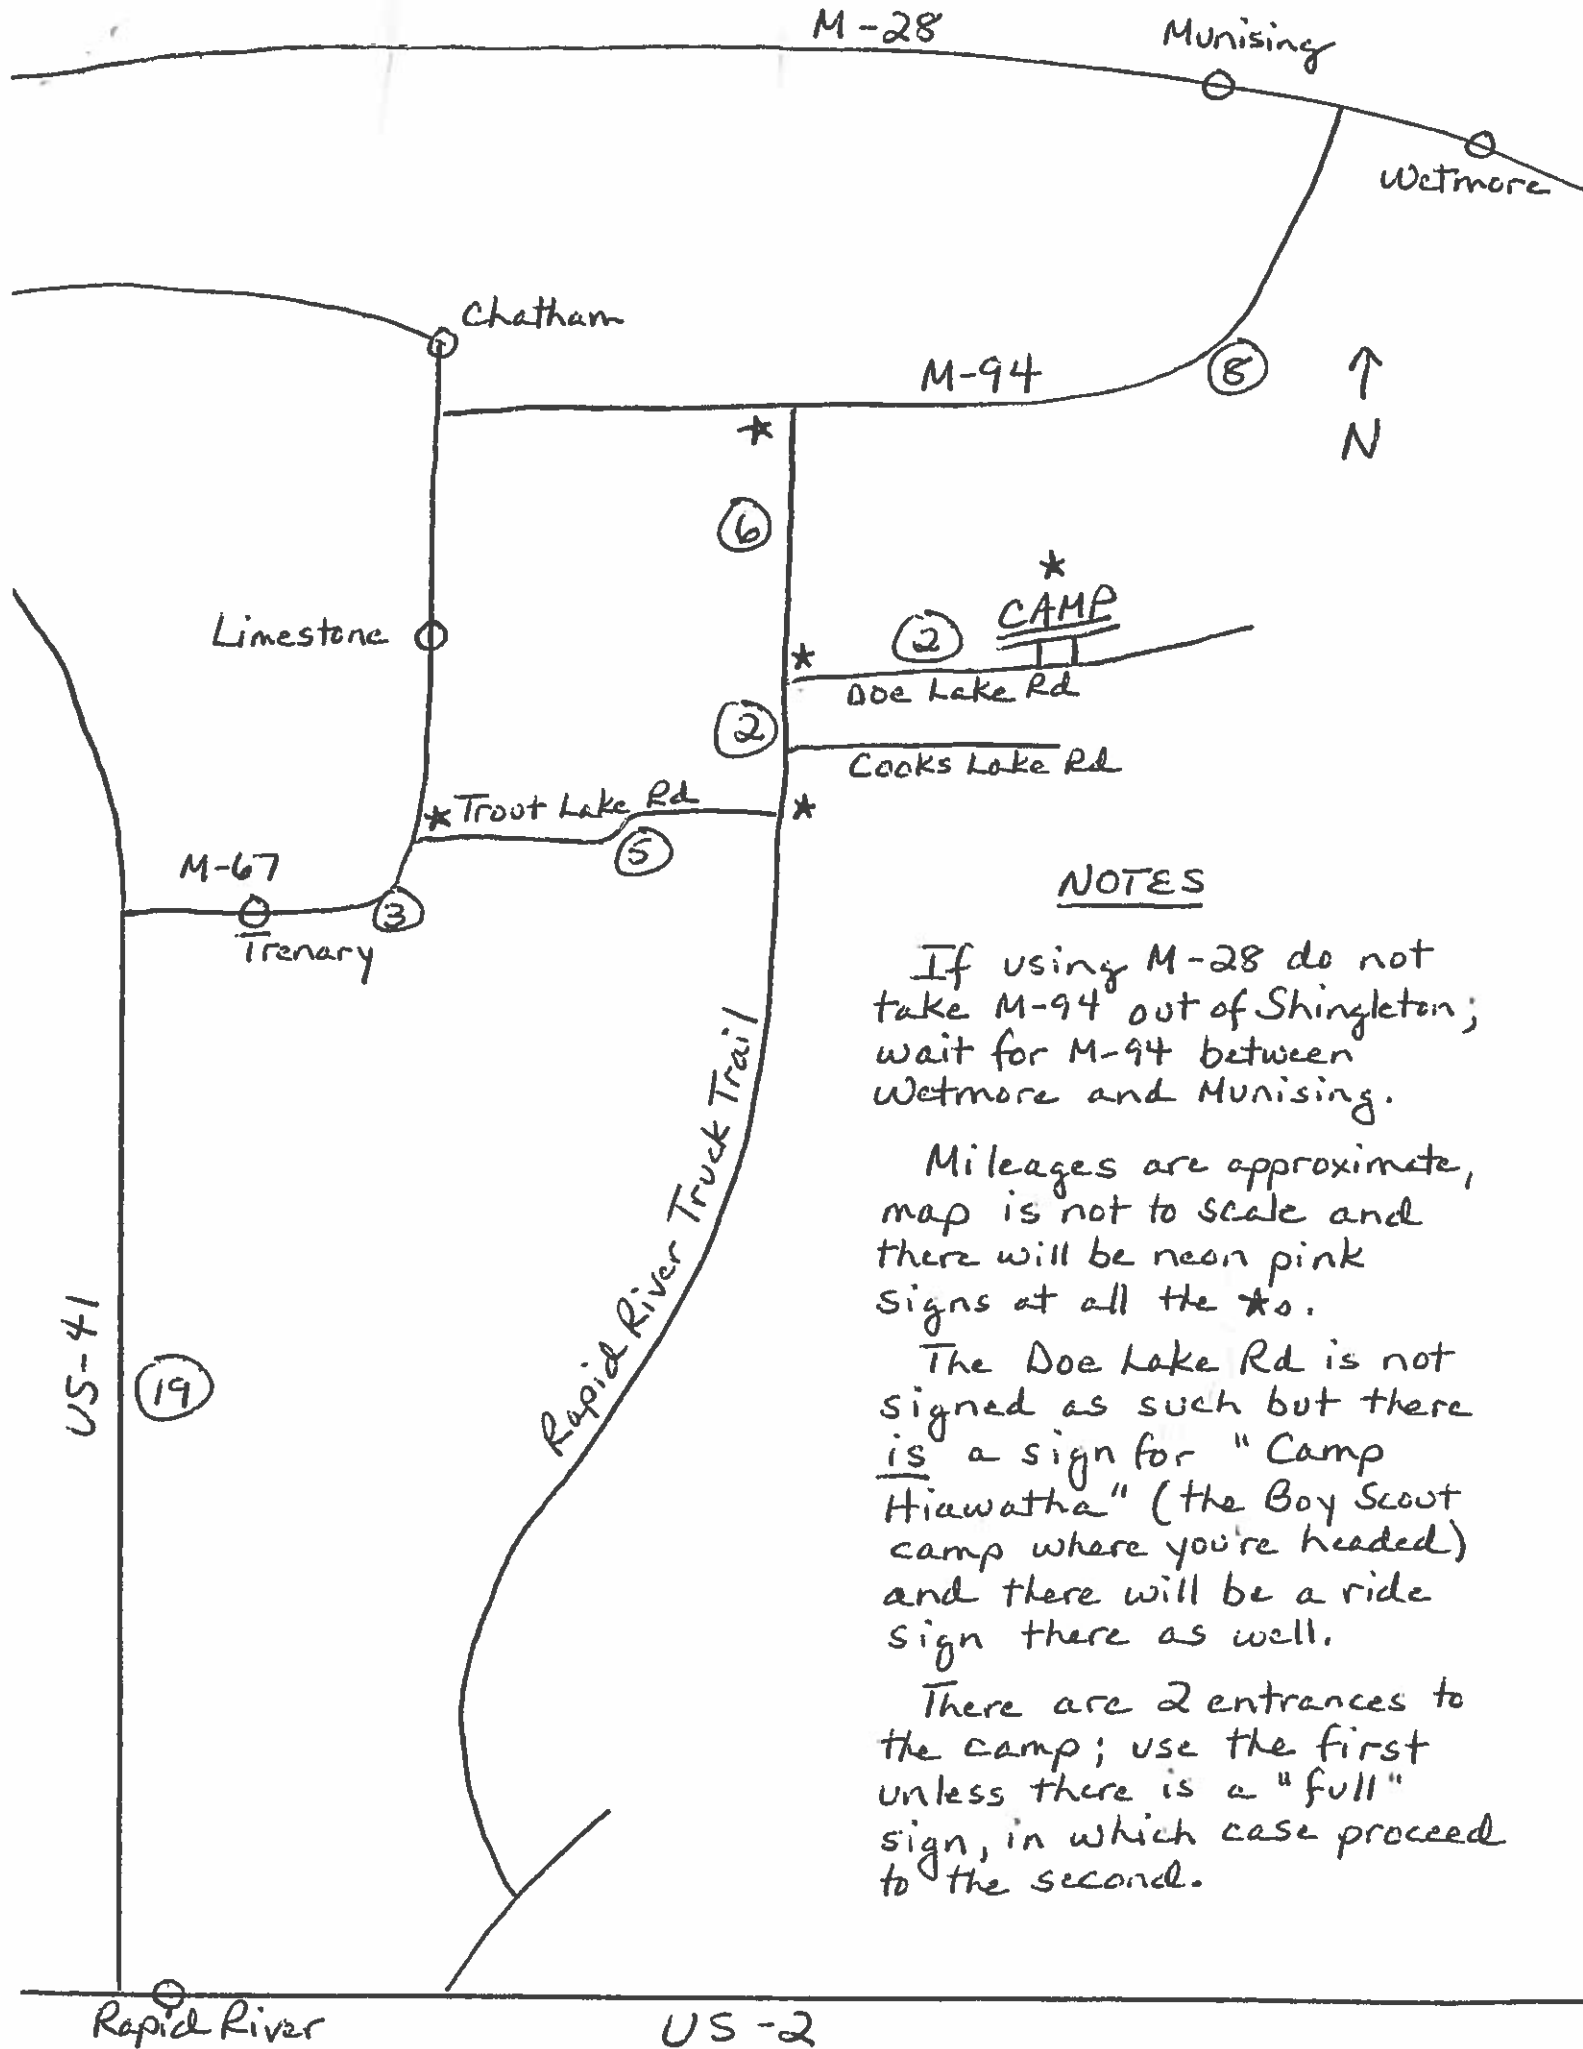 M-28
Munising
Wetmore
Chatham
M-94
8
↑
N
*
6
*
CAMP
2
Limestone
*
Doe Lake Rd
2
Cooks Lake Rd
* Trout Lake Rd
*
5
M-67
3
Trenary
NOTES
If using M-28 do not
take M-94 out of Shingleton;
wait for M-94 between
Wetmore and Munising.
Mileages are approximate,
map is not to scale and
there will be neon pink
signs at all the *s.
The Doe Lake Rd is not
signed as such but there
is a sign for "Camp
Hiawatha" (the Boy Scout
camp where you're headed)
and there will be a ride
sign there as well.
There are 2 entrances to
the camp; use the first
unless there is a "full"
sign, in which case proceed
to the second.
Rapid River Truck Trail
US-41
19
Rapid River
US-2